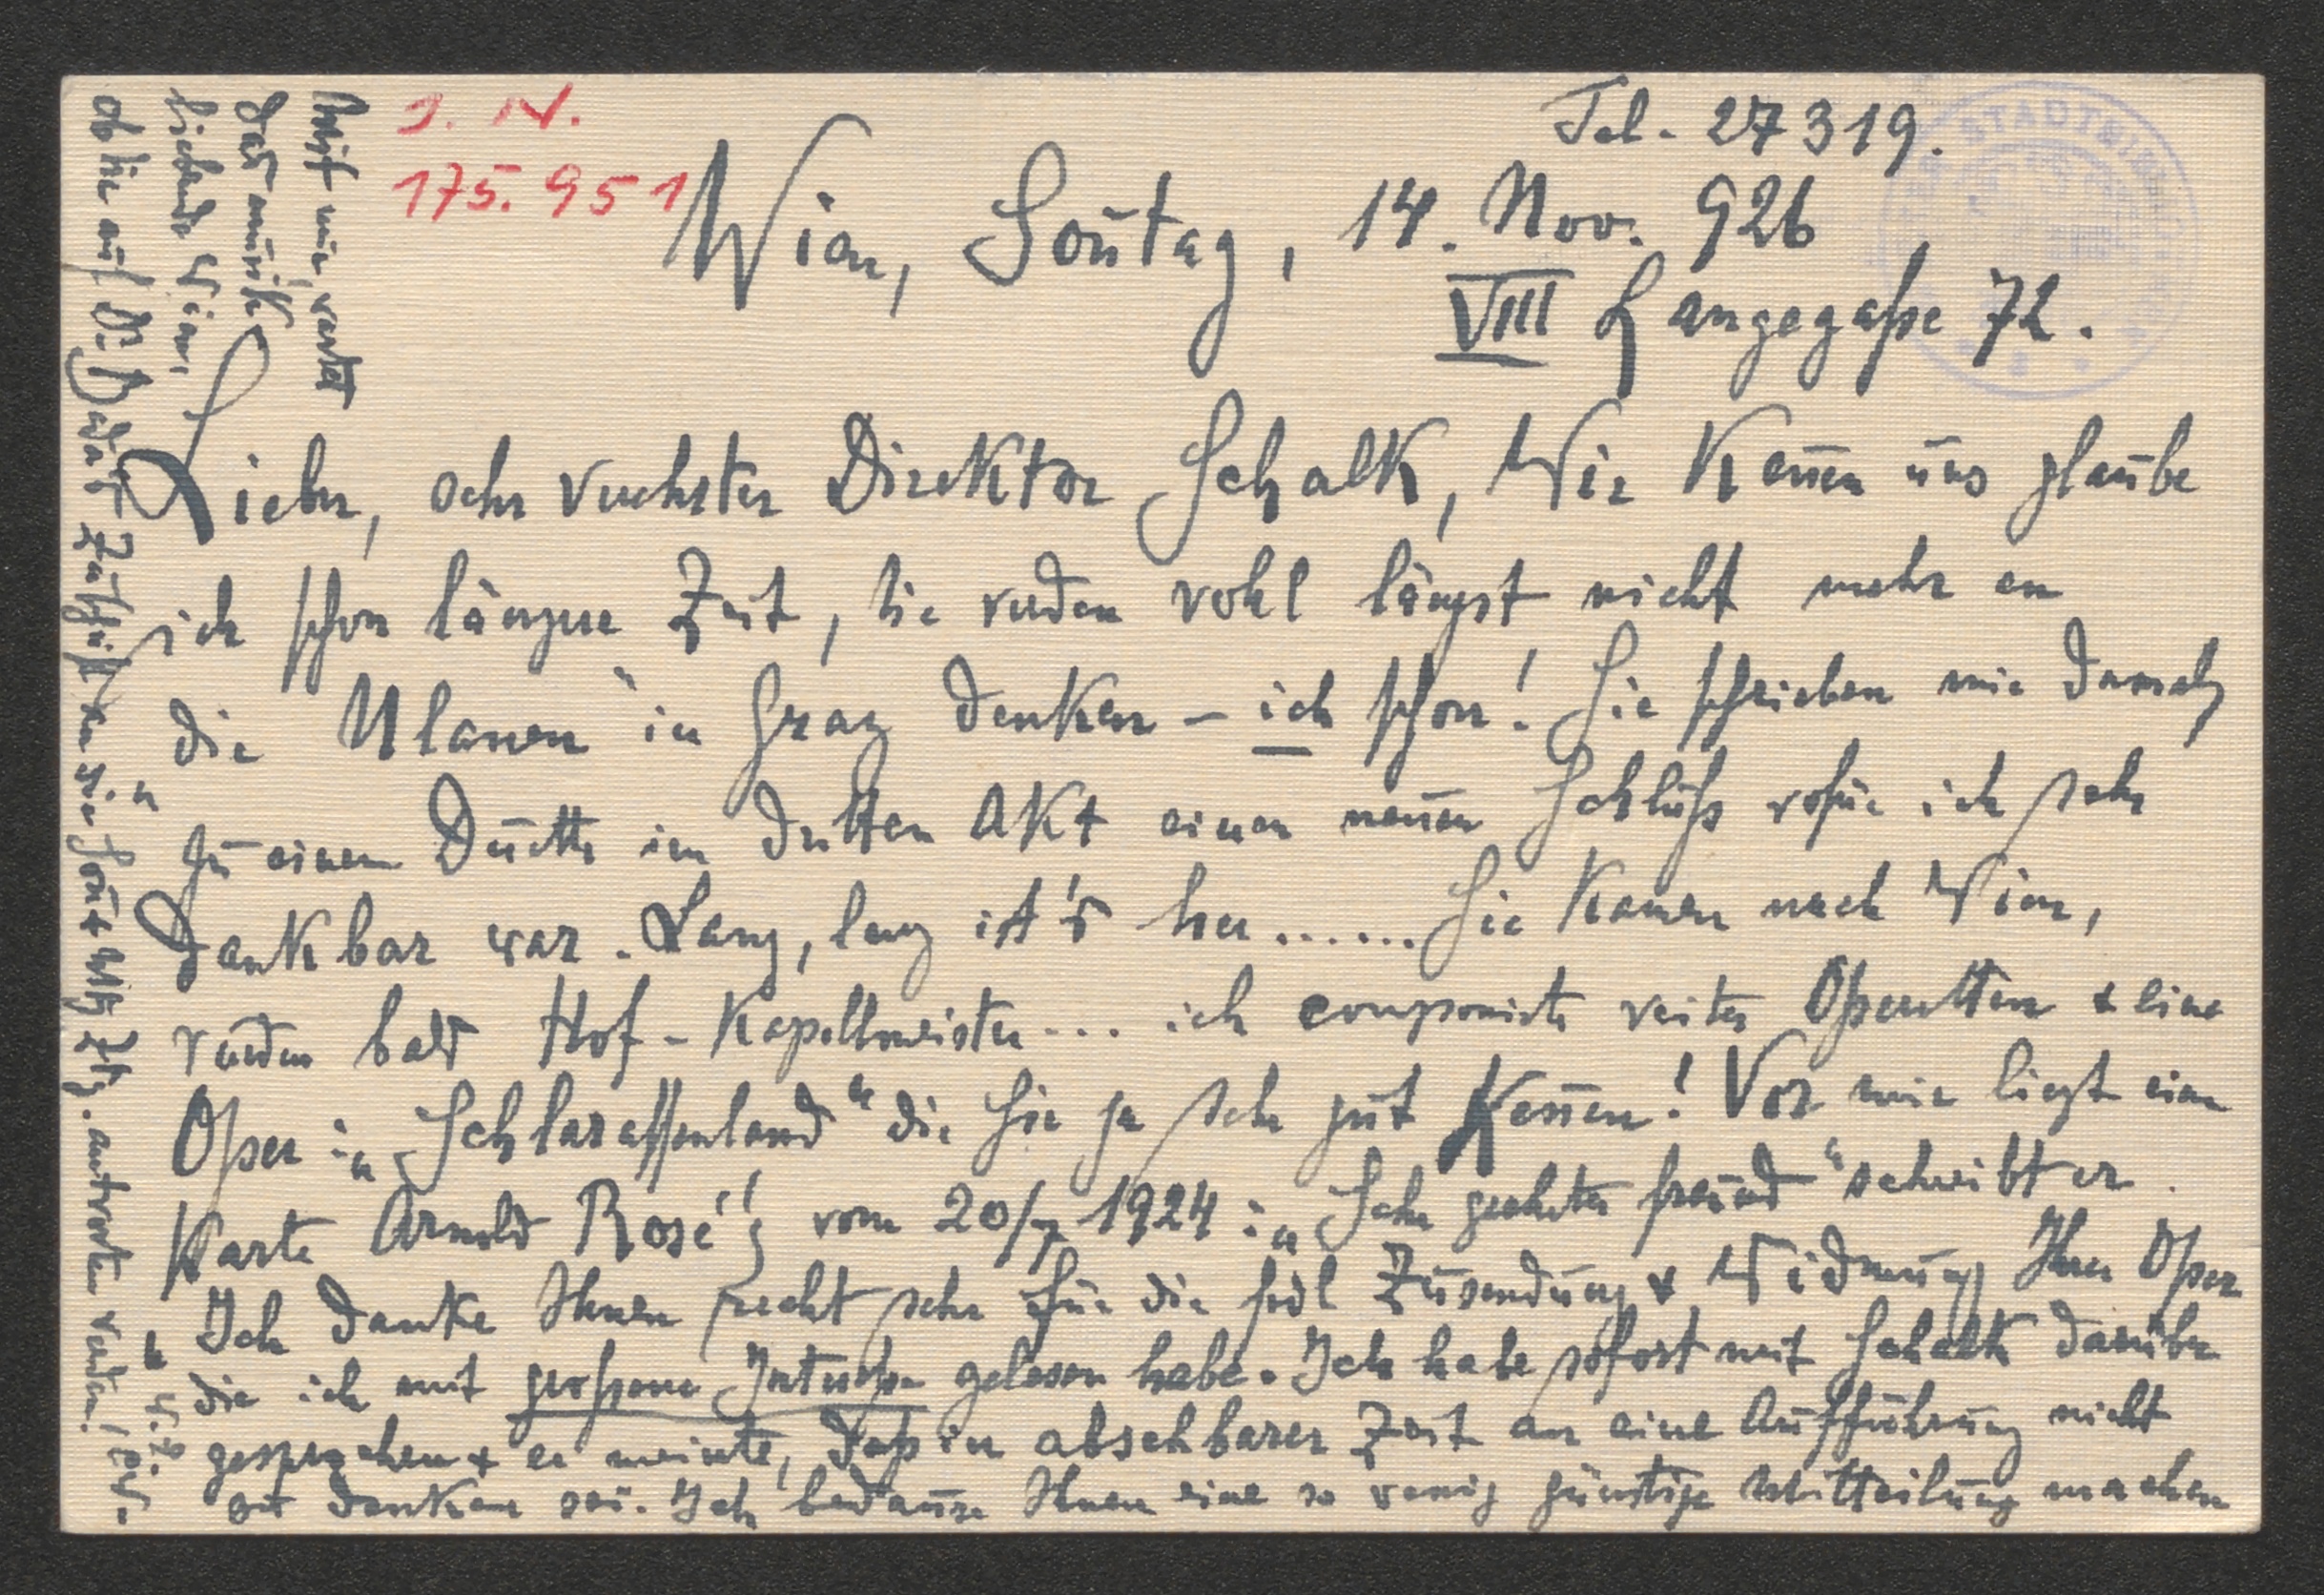 J. N.
175.951
Tel. 27319.
Wien, Soñtag, 14. Nov. 926
VIII Langegaße 72.
Lieber, sehr verehrter Direktor Schalk, Wir keñen uns glaube
ich schon längere Zeit, Sie werden wohl längst nicht mehr an
die „Ulanen" in Graz denken – ich schon! Sie schrieben mir damals
zu einem Duette im dritten Akt einen neuen Schluß wofür ich sehr
dankbar war. Lang, lang ist's her...... Sie kamen nach Wien,
wurden bald Hof-Kapellmeister... ich componirte weiter Operetten & eine
Oper: „Schlaraffenland" die Sie ja sehr gut keñen! Vor mir liegt eine
Karte Arnold Rosé's vom 20/7 1924: „Sehr geehrter Freund" schreibt er.
„Ich danke Ihnen recht sehr für die frdl Zusendung & Widmung Ihrer Oper
die ich mit großem Intereße gelesen habe. Ich habe sofort mit Schalk darüber
gesprochen & er meinte, daß in absehbarer Zeit an eine Aufführung nicht
zu denken sei. Ich bedaure Ihnen eine so wenig günstige Mitteilung machen
Mit mir wartet
das musik
liebende Wien,
ob Sie auf Dr. Zuschrift an die Soñ & Mtg Ztg. antworten werden!
STADTBI